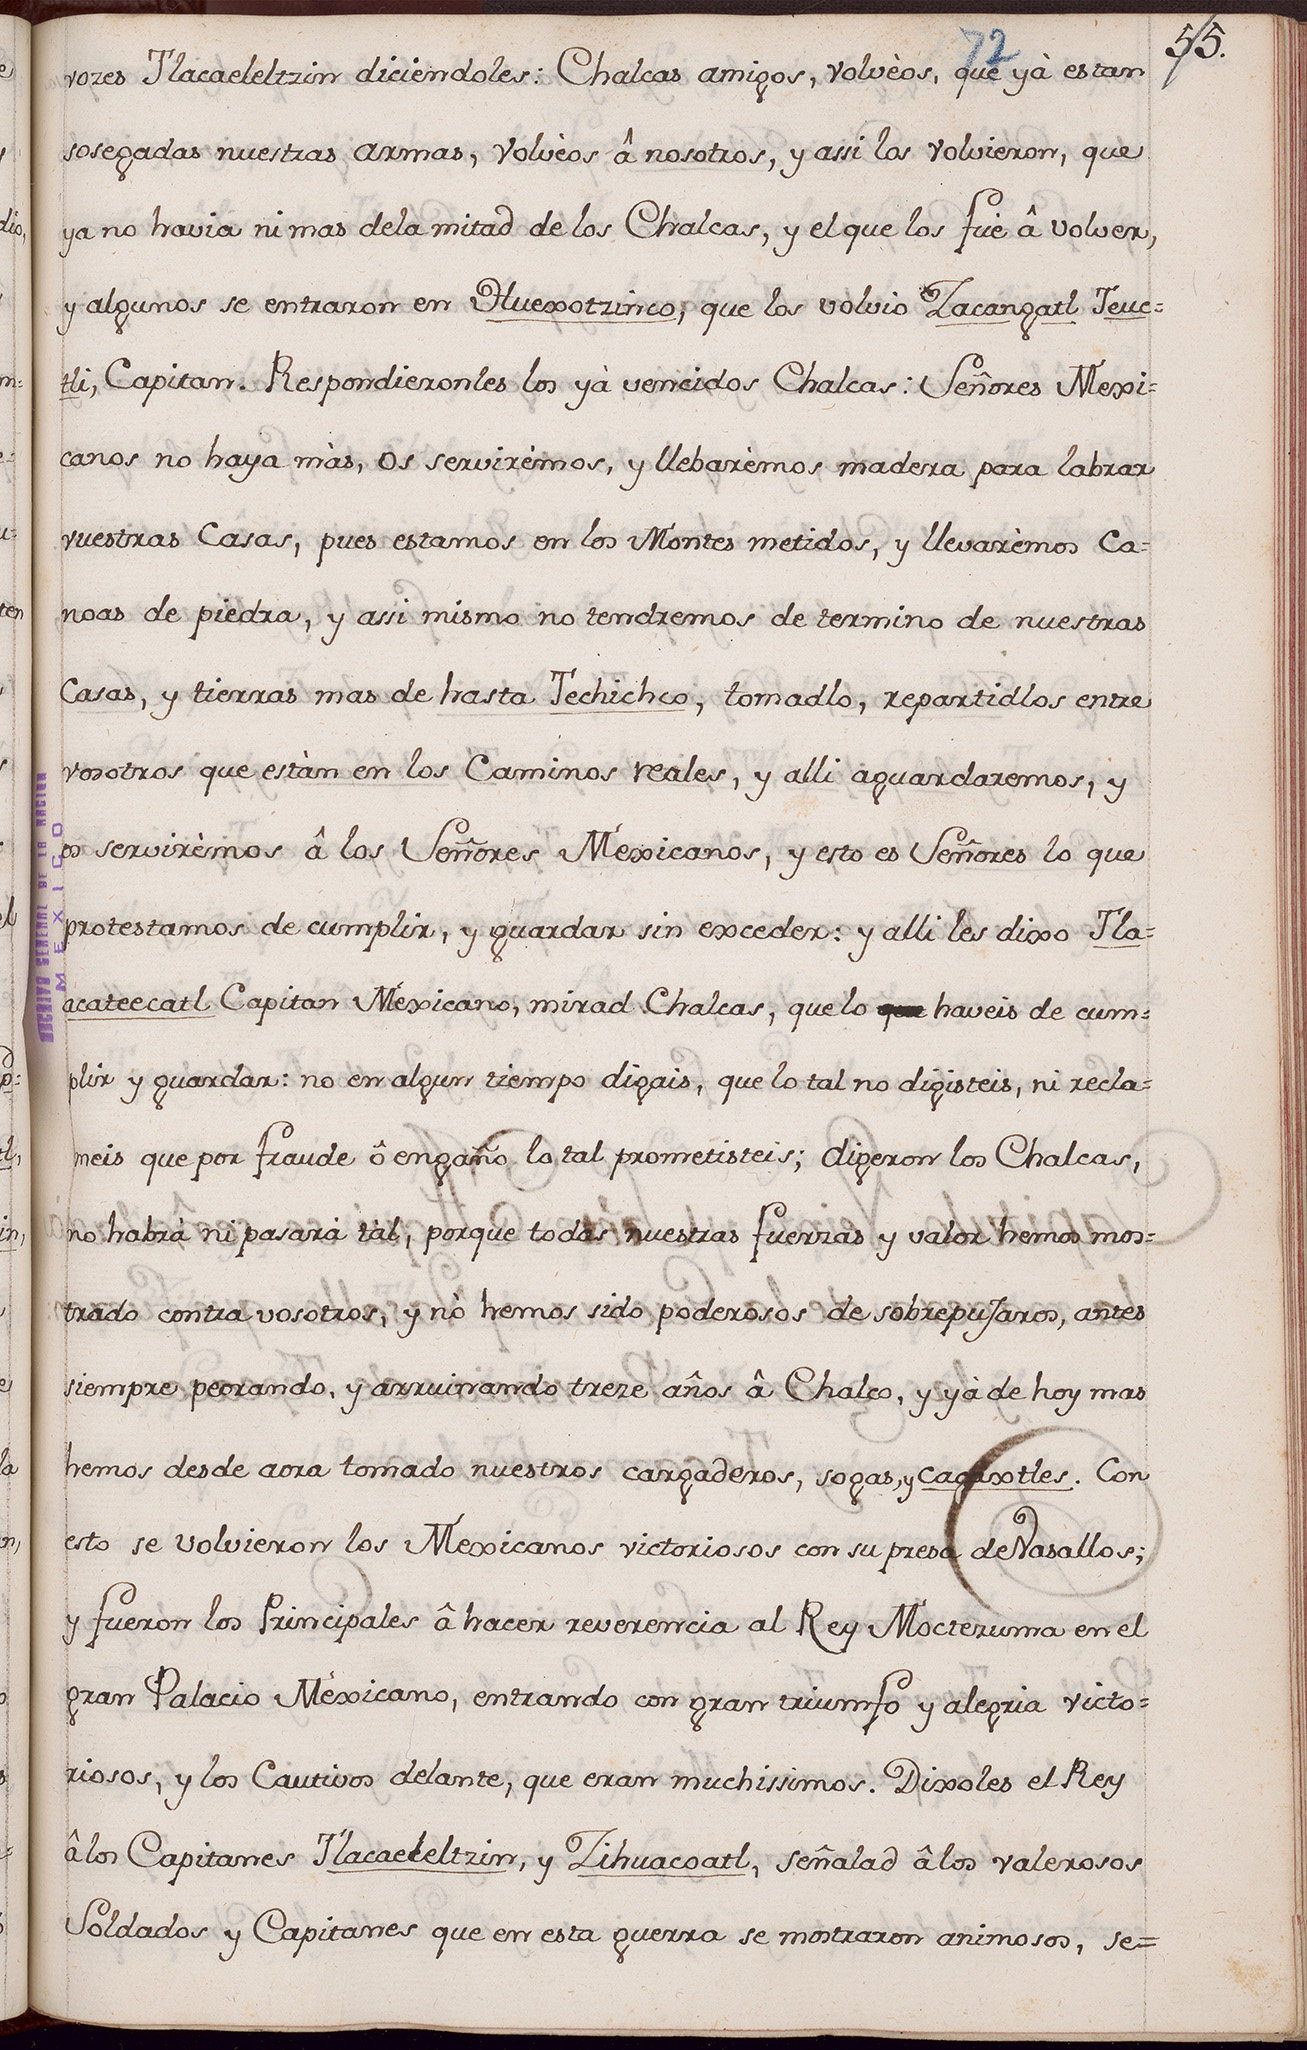 72
55.
vozes Tlacaeleltzin diciendoles: Chalcas amigos, volvèos, que yà estan
sosegadas nuestras armas, Volvèos â nosotros, y assi los volvieron, que
ya no havia ni mas dela mitad de los Chalcas, y el que los fuè â volver,
y algunos se entraron en Huexotzinco, que los volvio Zacangatl Teuc=
tli, Capitan. Respondieronles los yà vencidos Chalcas: Señores Mexi=
canos no haya màs, os servirèmos, y llebarèmos madera para labrar
vuestras Casas, pues estamos en los Montes metidos, y llevarèmos Ca=
noas de piedra, y assi mismo no tendremos de termino de nuestras
Casas, y tierras mas de hasta Techichco, tomadlo, repartidlos entre
vosotros que estàn en los Caminos reales, y alli aguardaremos, y
os servirèmos â los Señores Mexicanos, y esto es Señores lo que
protestamos de cumplir, y guardar sin exceder: y alli les dixo Tla=
acateecatl Capitan Mexicano, mirad Chalcas, que lo haveis de cum=
plir y guardar: no en algun tiempo digais, que lo tal no digisteis, ni recla=
meis que por fraude ô engaño lo tal prometisteis; digeron los Chalcas,
no habrà ni pasarà tàl, porque todas nuestras fuerzas y valor hemos mos=
trado contra vosotros, y nò hemos sido poderosos de sobrepuJaros, antes
siempre peorando, y arruinando treze años â Chalco, y yà de hoy mas
hemos desde aora tomado nuestros cargaderos, sogas, y cacaxtles. Con
esto se volvieron los Mexicanos victoriosos con su presa de Vasallos;
y fueron los Principales â hacer reverencia al Rey Moctezuma en el
gran Palacio Mexicano, entrando con gran triumfo y alegria victo=
riosos, y los Cautivos delante, que eran muchissimos. Dixoles el Rey
â los Capitanes Tlacaeleltzin, y Zihuacoatl, señalad â los valerosos
Soldados y Capitanes que en esta guerra se mostraron animosos, se=
ARCHIVO GENERAL DE LA NACION
MEXICO